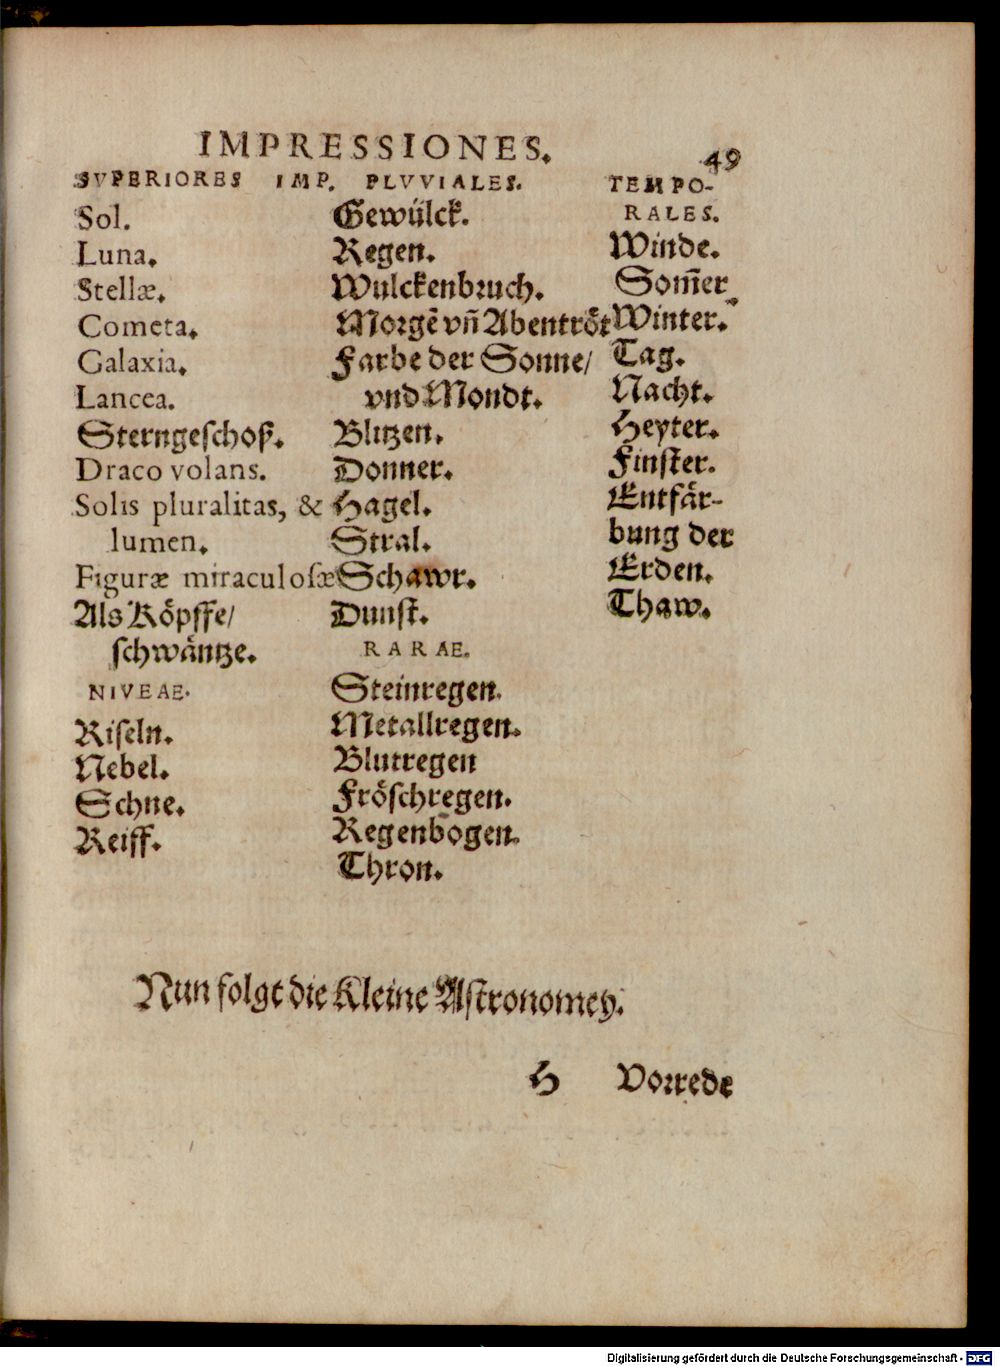 IMPRESSIONES.
49
SVPERIORES IMP.
Sol.
Luna.
Stellæ.
Cometa.
Galaxia.
Lancea.
Sterngeschoß.
Draco volans.
Solis pluralitas, &
lumen.
Figuræ miraculosæ
Als Köpffe/
schwäntze.
NIVEAE.
Riseln.
Nebel.
Schne.
Reiff.
PLVVIALES.
Gewülck.
Regen.
Wulckenbruch.
Morgē vñ Abentröt
Farbe der Sonne/
vnd Mondt.
Blitzen.
Donner.
Hagel.
Stral.
Schawr.
Dunst.
RARAE.
Steinregen.
Metallregen.
Blutregen
Fröschregen.
Regenbogen.
Thron.
TEMPO-
RALES.
Winde.
Som̄er
Winter.
Tag.
Nacht.
Heyter.
Finster.
Entfär-
bung der
Erden.
Thaw.
Nun folgt die Kleine Astronomey.
H Vorrede
Digitalisierung gefördert durch die Deutsche Forschungsgemeinschaft - DFG